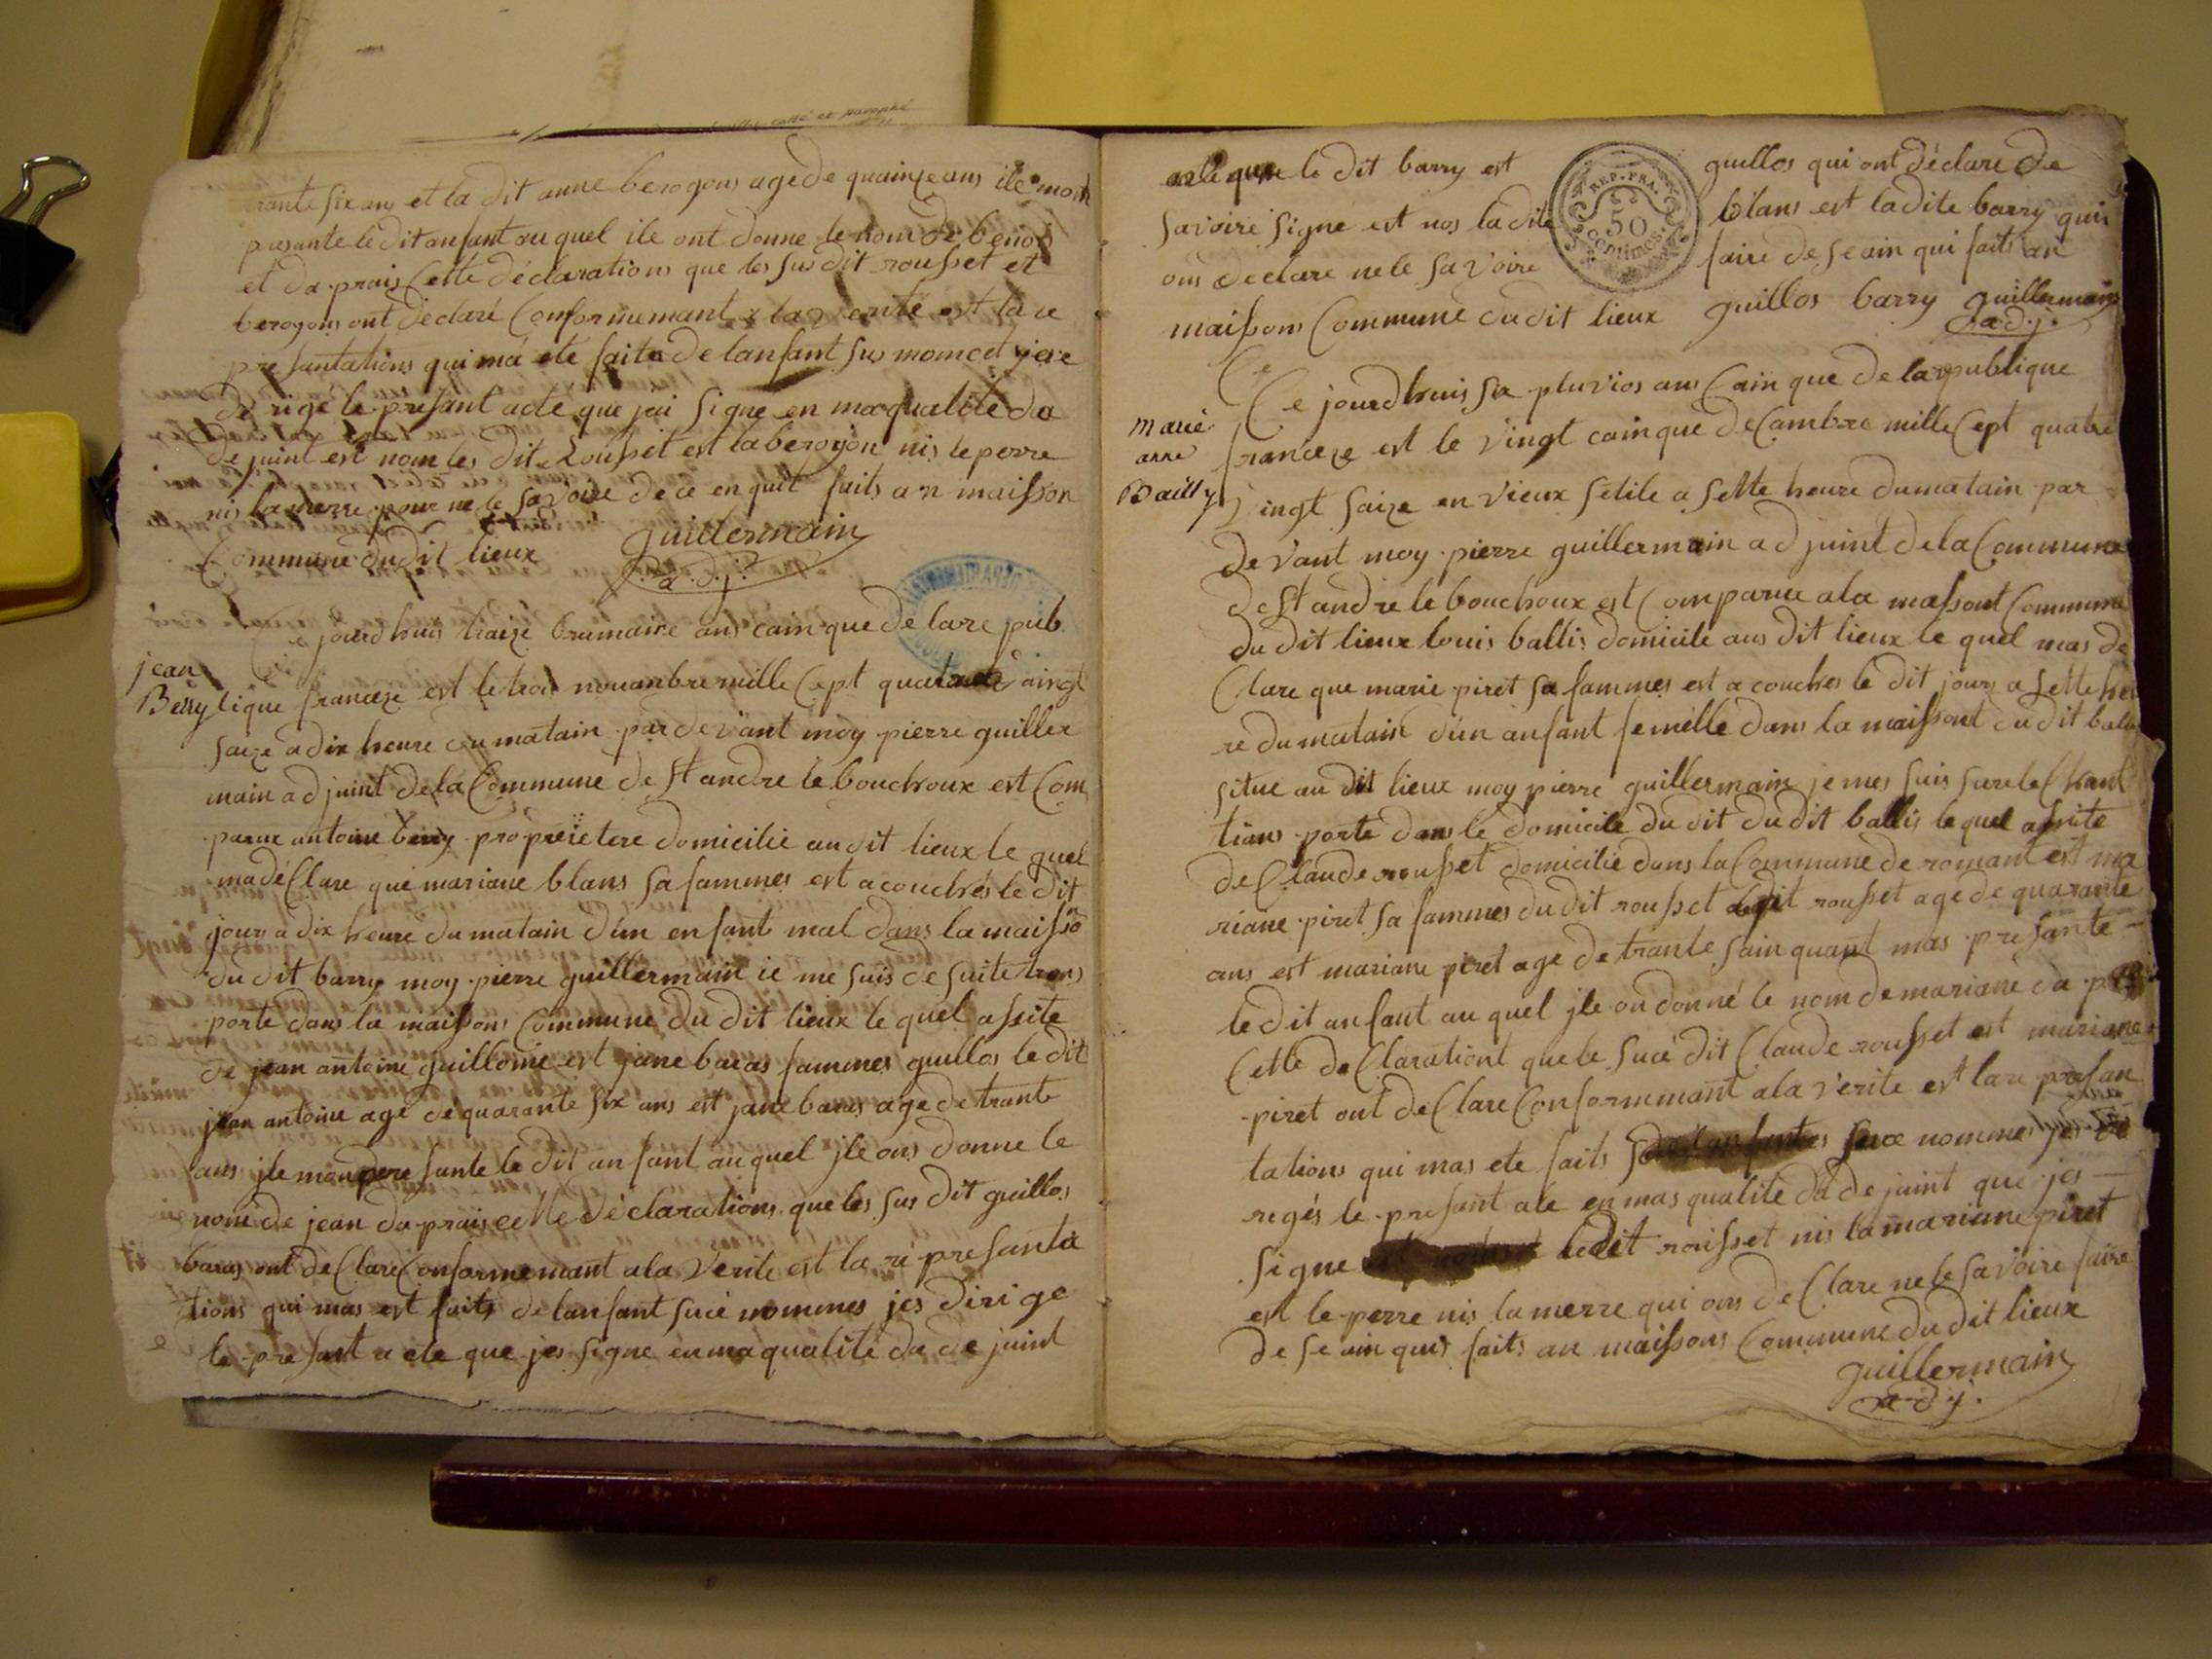 trante six ans et la dit anne berogons age de quainze ans ile mon
presante le dit anfant au quel ile ont donne le nom de benoi
et da prais Cette déclarations que les sus dit rousset et
berogons ont déclaré Conformemant a la verite est la re
presantations qui ma eté faite de lanfant sus nomé et je
dé rigé le presant acte que jai signe en ma qualite da
de juint est nom les dit Rousset est la berogon nis le perre
nis la merre pour ne le savoire de ce enquit faits an maisson
Commune du dit lieux guillermain
a.d.j.
Ce jourdhuis traize brumaire ans cainque de la re pub
jean
Berry
lique franceze est le trois novanbre mille Cept quatre vaingt
saize a dix heure du matain par devant moy pierre guiller
main adjuint de la Commune de St andre le bouchoux est Com
parue antoine berry propreietere domicilie au dit lieux le quel
ma déClare que mariane blans sa fammes est acouchés le dit
jours a dix heure du matain d'un enfant mal dans la maisson
du dit barry moy pierre guillermain ie me suis de suite trans
porte dans la maissons Commune du dit lieux le quel assite
de jean antoine guillome est jane baras fammes guillos le dit
jean antoine age de quarante six ans est jane baras age de trante
ans jle mon presante le dit anfant au quel jle ons donne le
nom de jean da prais cette déclarations que les sus dit guillos
baras ont deClare Conformemant a la Verite est la re presanta
tions qui mas est faits de lanfant sucé nommes jes dirige
le presant acte que jes signe en ma qualite da de juint
le dit barry est guillos qui ont déclare de
savoire signe est nos la dite blans est la dite barry qui
ons declare ne le savoire faire de se ain qui faits an
maissons Commune du dit lieux guillos barry guillermain
a.d.j.
REP. FRA.
50
centimes.
Ce
Ce jourdhuis six pluvios ans Cainque de la republique
marie
anne
Bailly
franceze est le vingt cainque deCambre mille Cept quatre
vingt saize en vieux setile a sette heure du matain par
devant moy pierre guillermain adjuint de la Commune
de St andre le bouchoux est Comparue a la massont Commune
du dit lieux louis ballis domicile aus dit lieux le quel mas de
Clare que marie piret sa fammes est acouches le dit jours a sette heu
re du matain d'un anfant femélle dans la maissont du dit ballis
situe au dit lieux moy pierre guillermain je mes suis sure le Chant
tians porte dans le domicile du dit du dit ballis le quel assite
de Claude rousset domicilie dans la Commune de romant est ma
riane piret sa fammes du dit rousset le dit rousset age de quarante
ans est mariane piret age de trante sain quant mas presante
le dit anfant au quel jle on donné le nom de mariane da prais
Cette deClarationt que le sucé dit Claude rousset est mariane
piret ont deClare Conformmant a la verite est la re presan
tations qui mas ete faits suce nommes jes di
regés le presant ate en mas qualite da de juint que jes
signe le dit rousset nis la mariane piret
est le perre nis la merre qui ons deClare ne le savoire faire
de se ain quis faits an maissons Commune du dit lieux
guillermain
adj.